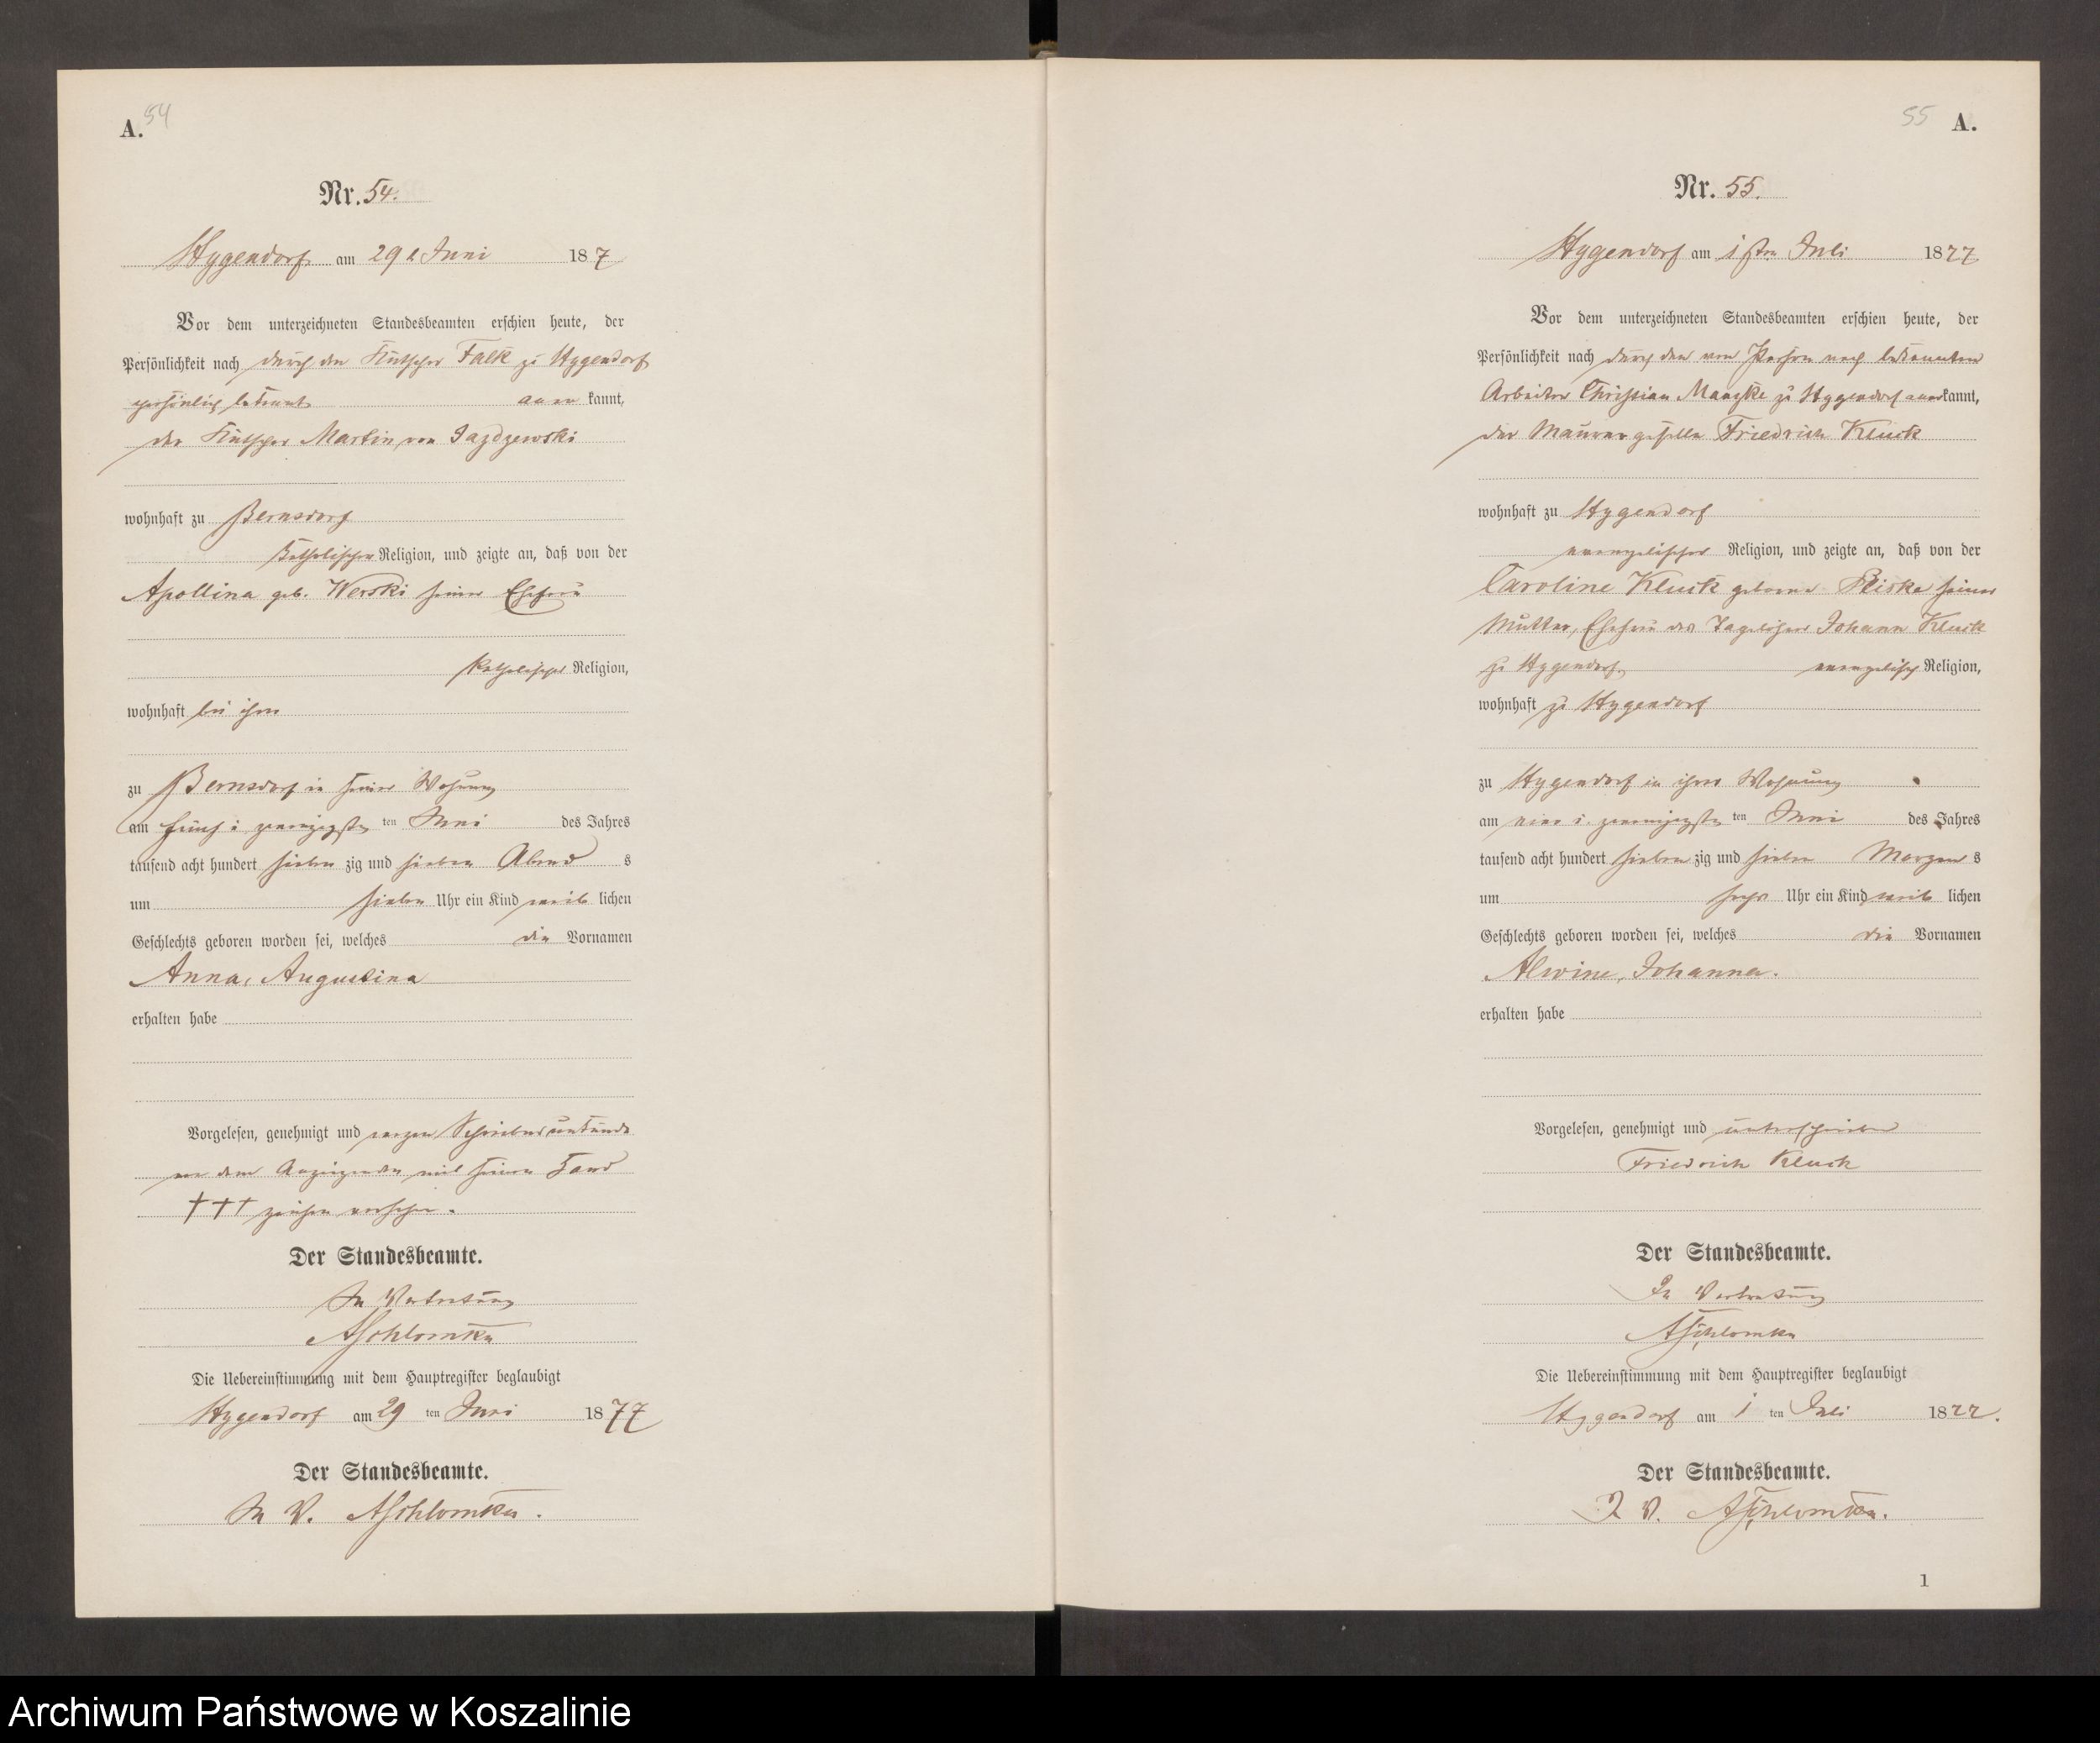 54
A.
Nr. 54.
Hygendorf am 29 t Juni 187
Vor dem unterzeichneten Standesbeamten erschien heute, der
Persönlichkeit nach durch den Kutscher Falk zu Hygendorf
persönlich bekannt aner kannt,
der Kutscher Martin von Jazdzewski
wohnhaft zu Bernsdorf
katholischer Religion, und zeigte an, daß von der
Apollina geb. Werski seiner Ehefrau
katholischer Religion,
wohnhaft bei ihm
zu Bernsdorf in seiner Wohnung
am fünf u zwanzigsten ten Juni des Jahres
tausend acht hundert sieben zig und sieben Abend s
um sieben Uhr ein Kind weib lichen
Geschlechts geboren worden sei, welches die Vornamen
Anna, Augustina
erhalten habe
Vorgelesen, genehmigt und wegen Schreibensunkunde
von dem Anzeigenden mit seinem Hand
††† zeichen versehen.
Der Standesbeamte.
In Vertretung
Die Uebereinstimmung mit dem Hauptregister beglaubigt
Hygendorf am 29 ten Juni 1877
Der Standesbeamte.
In V.
55 A.
Nr. 55.
Hygendorf am 1 sten Juli 1877
Vor dem unterzeichneten Standesbeamten erschien heute, der
Persönlichkeit nach durch den von Person nach bekannten
Arbeiter Christian Manzke zu Hygendorf anerkannt,
der Maurergeselle Friedrich Kluck
wohnhaft zu Hygendorf
evangelischer Religion, und zeigte an, daß von der
Caroline Kluck geborne Pliska seiner
Mutter, Ehefrau des Tagelöhner Johann Kluck
zu Hygendorf, evangelisch Religion,
wohnhaft zu Hygendorf
zu Hygendorf in ihrer Wohnung
am vier u. zwanzigsten ten Juni des Jahres
tausend acht hundert sieben zig und sieben Morgen s
um sechs Uhr ein Kind weib lichen
Geschlechts geboren worden sei, welches die Vornamen
Alwine, Johanna.
erhalten habe
Vorgelesen, genehmigt und unterschrieben
Friedrich Kluck
Der Standesbeamte.
In Vertretung
Die Uebereinstimmung mit dem Hauptregister beglaubigt
Hygendorf am 1 ten Juli 1877.
Der Standesbeamte.
I V.
1
Archiwum Państwowe w Koszalinie